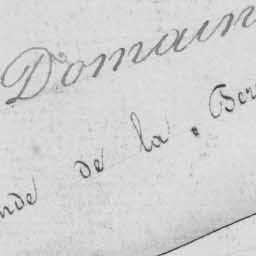 Domain
nde de la Ber